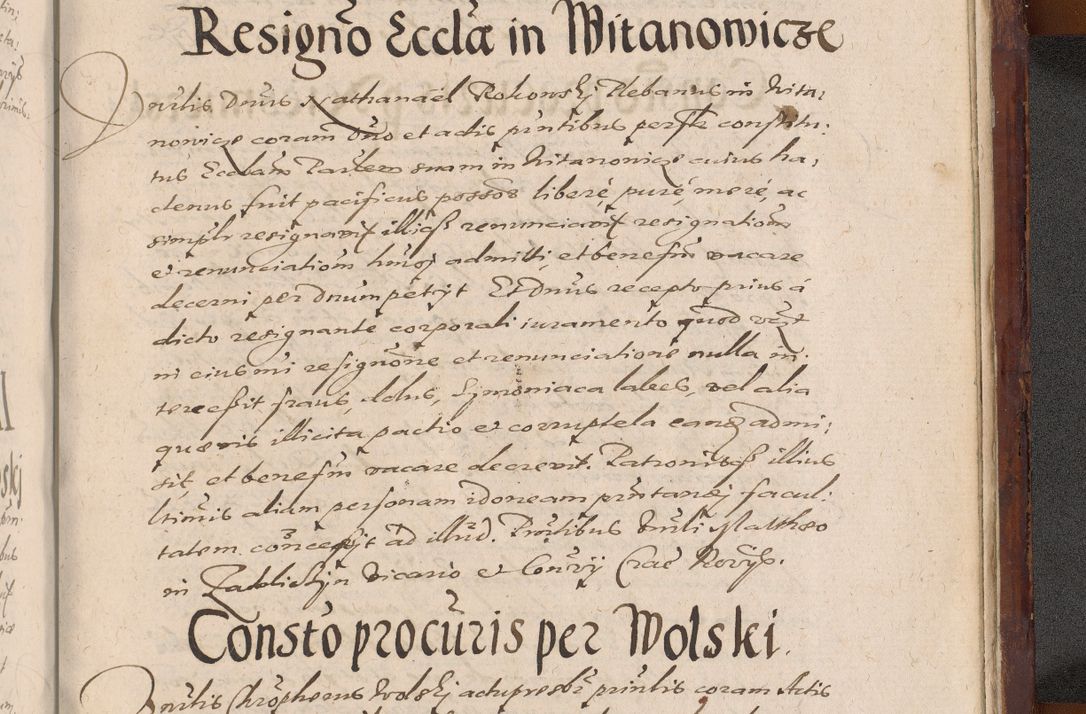 Resigno Eccla in Witanowicze
Dnulis Dnus Nathanael Rokowskj Plebanus in Wita,
nowicze coram dno et actis pntibus pste constitu,
tus Ecclam Parlem suam in Witanowicze cuius ha,
ctenus fuit pacificus possos liberé, puré, meré, ac
simplr resignavit illiqs renunciavit resignationem
et renunciationem hmoj admitti, et benefm vacare
decerni per Dnum petyt Et Dnus recepto prius á
dicto resignante corporali iuramento quod
ni eiusmi resignone et renunciatione nulla in,
tercessit fraus, dolus, Symoniaca labes, vel alia
quævis illicita pactio et corruptela eanq admi,
sit, et benefm vacare decrevit. Patronisqs illius
ltimis aliam personam idoneam pntandj facul,
tatem concessit ad illud. Pntibus Dnuli Mattheo
in Vicario et Crac Notrys.
Consto procuris per Wolski.
Dnulis Chrophorus Wolskj actu presbr pnulis coram Actis